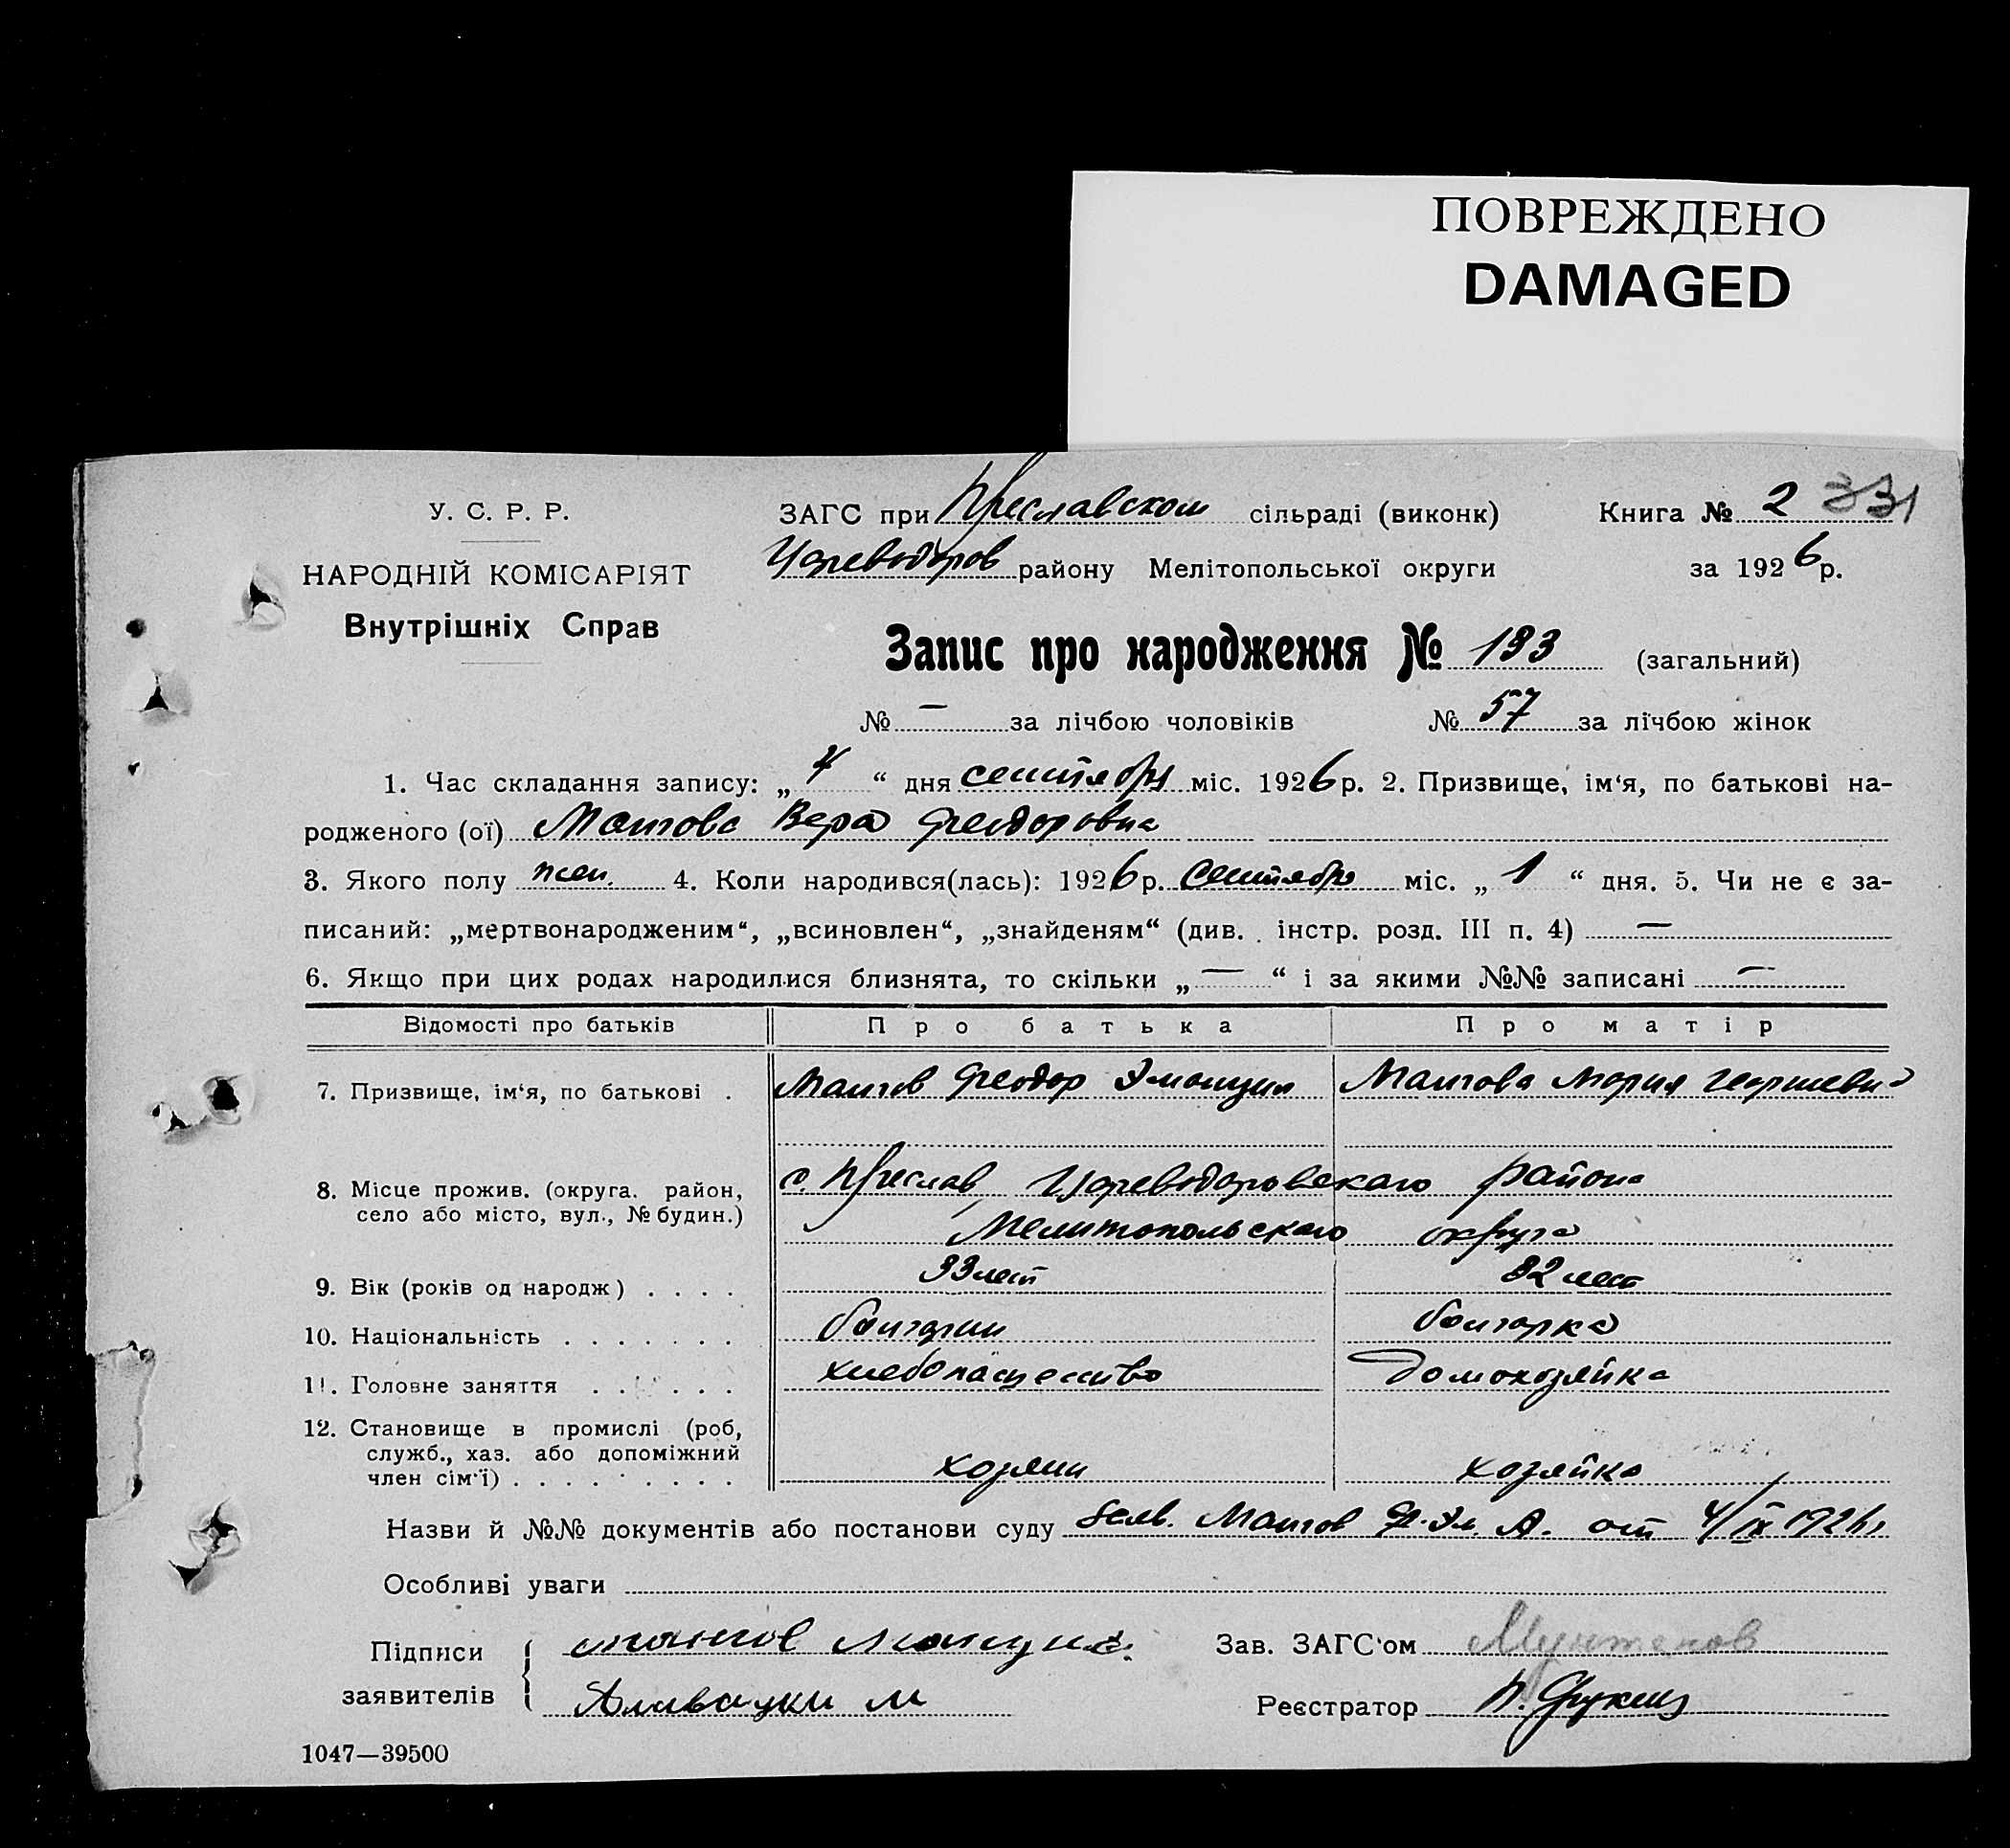 ПОВРЕЖДЕНО
DAMAGED
У. С. Р. Р.
НАРОДНІЙ КОМІСАРІЯТ
Внутрішніх Справ
ЗАГС при Преславском сільраді (виконк) Книга № 2 331
Цареводаров району Мелітопольської округи за 1926 р.
Запис про народження № 193 (загальний)
№ — за лічбою чоловіків № 57 за лічбою жінок
1. Час складання запису: „ 4 “ дня сентября міс. 1926 р. 2. Призвище, ім‘я, по батькові на-
родженого (ої) Вера Феодоровна
3. Якого полу жен. 4. Коли народився(лась): 1926 р. сентября міс. „ 1 “ дня. 5. Чи не є за-
писаний: „мертвонародженим“, „всиновлен“, „знайденям“ (див. інстр. розд. III п. 4) —
6. Якщо при цих родах народилися близнята, то скільки „ — “ і за якими №№ записані —
Відомості про батьків Про батька Про матір
7. Призвище, ім‘я, по батькові . Феодор Мария Георгиевна
8. Місце прожив. (округа. район, с. Преслав, Цареводаровскаго района
село або місто, вул., № будин.) Мелитопольскаго округа
9. Вік (років од народж) . . . . 33 лет 32 лет
10. Національність . . . . . . . болгарин болгарка
11. Головне заняття . . . . . . хлебопашество домохозяйка
12. Становище в промислі (роб,
служб., хаз. або допоміжний
член сім‘ї) . . . . . . . . . хозяин хозяйка
Назви й №№ документів або постанови суду от 4/IX 1926 г
Особливі уваги
Підписи
заявителів
Зав. ЗАГС‘ом Мунтянов
Реєстратор
1047—39500